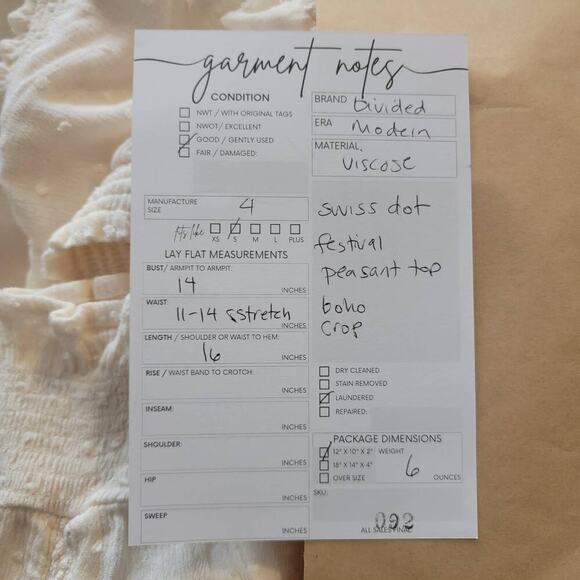 garment notes
CONDITION
NWT / WITH ORIGINAL TAGS
NWOT/ EXCELLENT
GOOD / GENTLY USED
FAIR / DAMAGED:
BRAND Divided
ERA Modern
MATERIAL:
viscose
MANUFACTURE SIZE 4
fits like XS S M L PLUS
LAY FLAT MEASUREMENTS
BUST/ ARMPIT TO ARMPIT:
14 INCHES
WAIST:
11-14 stretch INCHES
LENGTH / SHOULDER OR WAIST TO HEM:
16 INCHES
RISE / WAIST BAND TO CROTCH:
INCHES
INSEAM:
INCHES
SHOULDER:
INCHES
HIP
INCHES
SWEEP
INCHES
swiss dot
festival
peasant top
boho
crop
DRY CLEANED
STAIN REMOVED
LAUNDERED
REPAIRED:
PACKAGE DIMENSIONS
12" X 10" X 2" WEIGHT
18" X 14" X 4" 6
OVER SIZE OUNCES
SKU:
092
ALL SALES FINAL